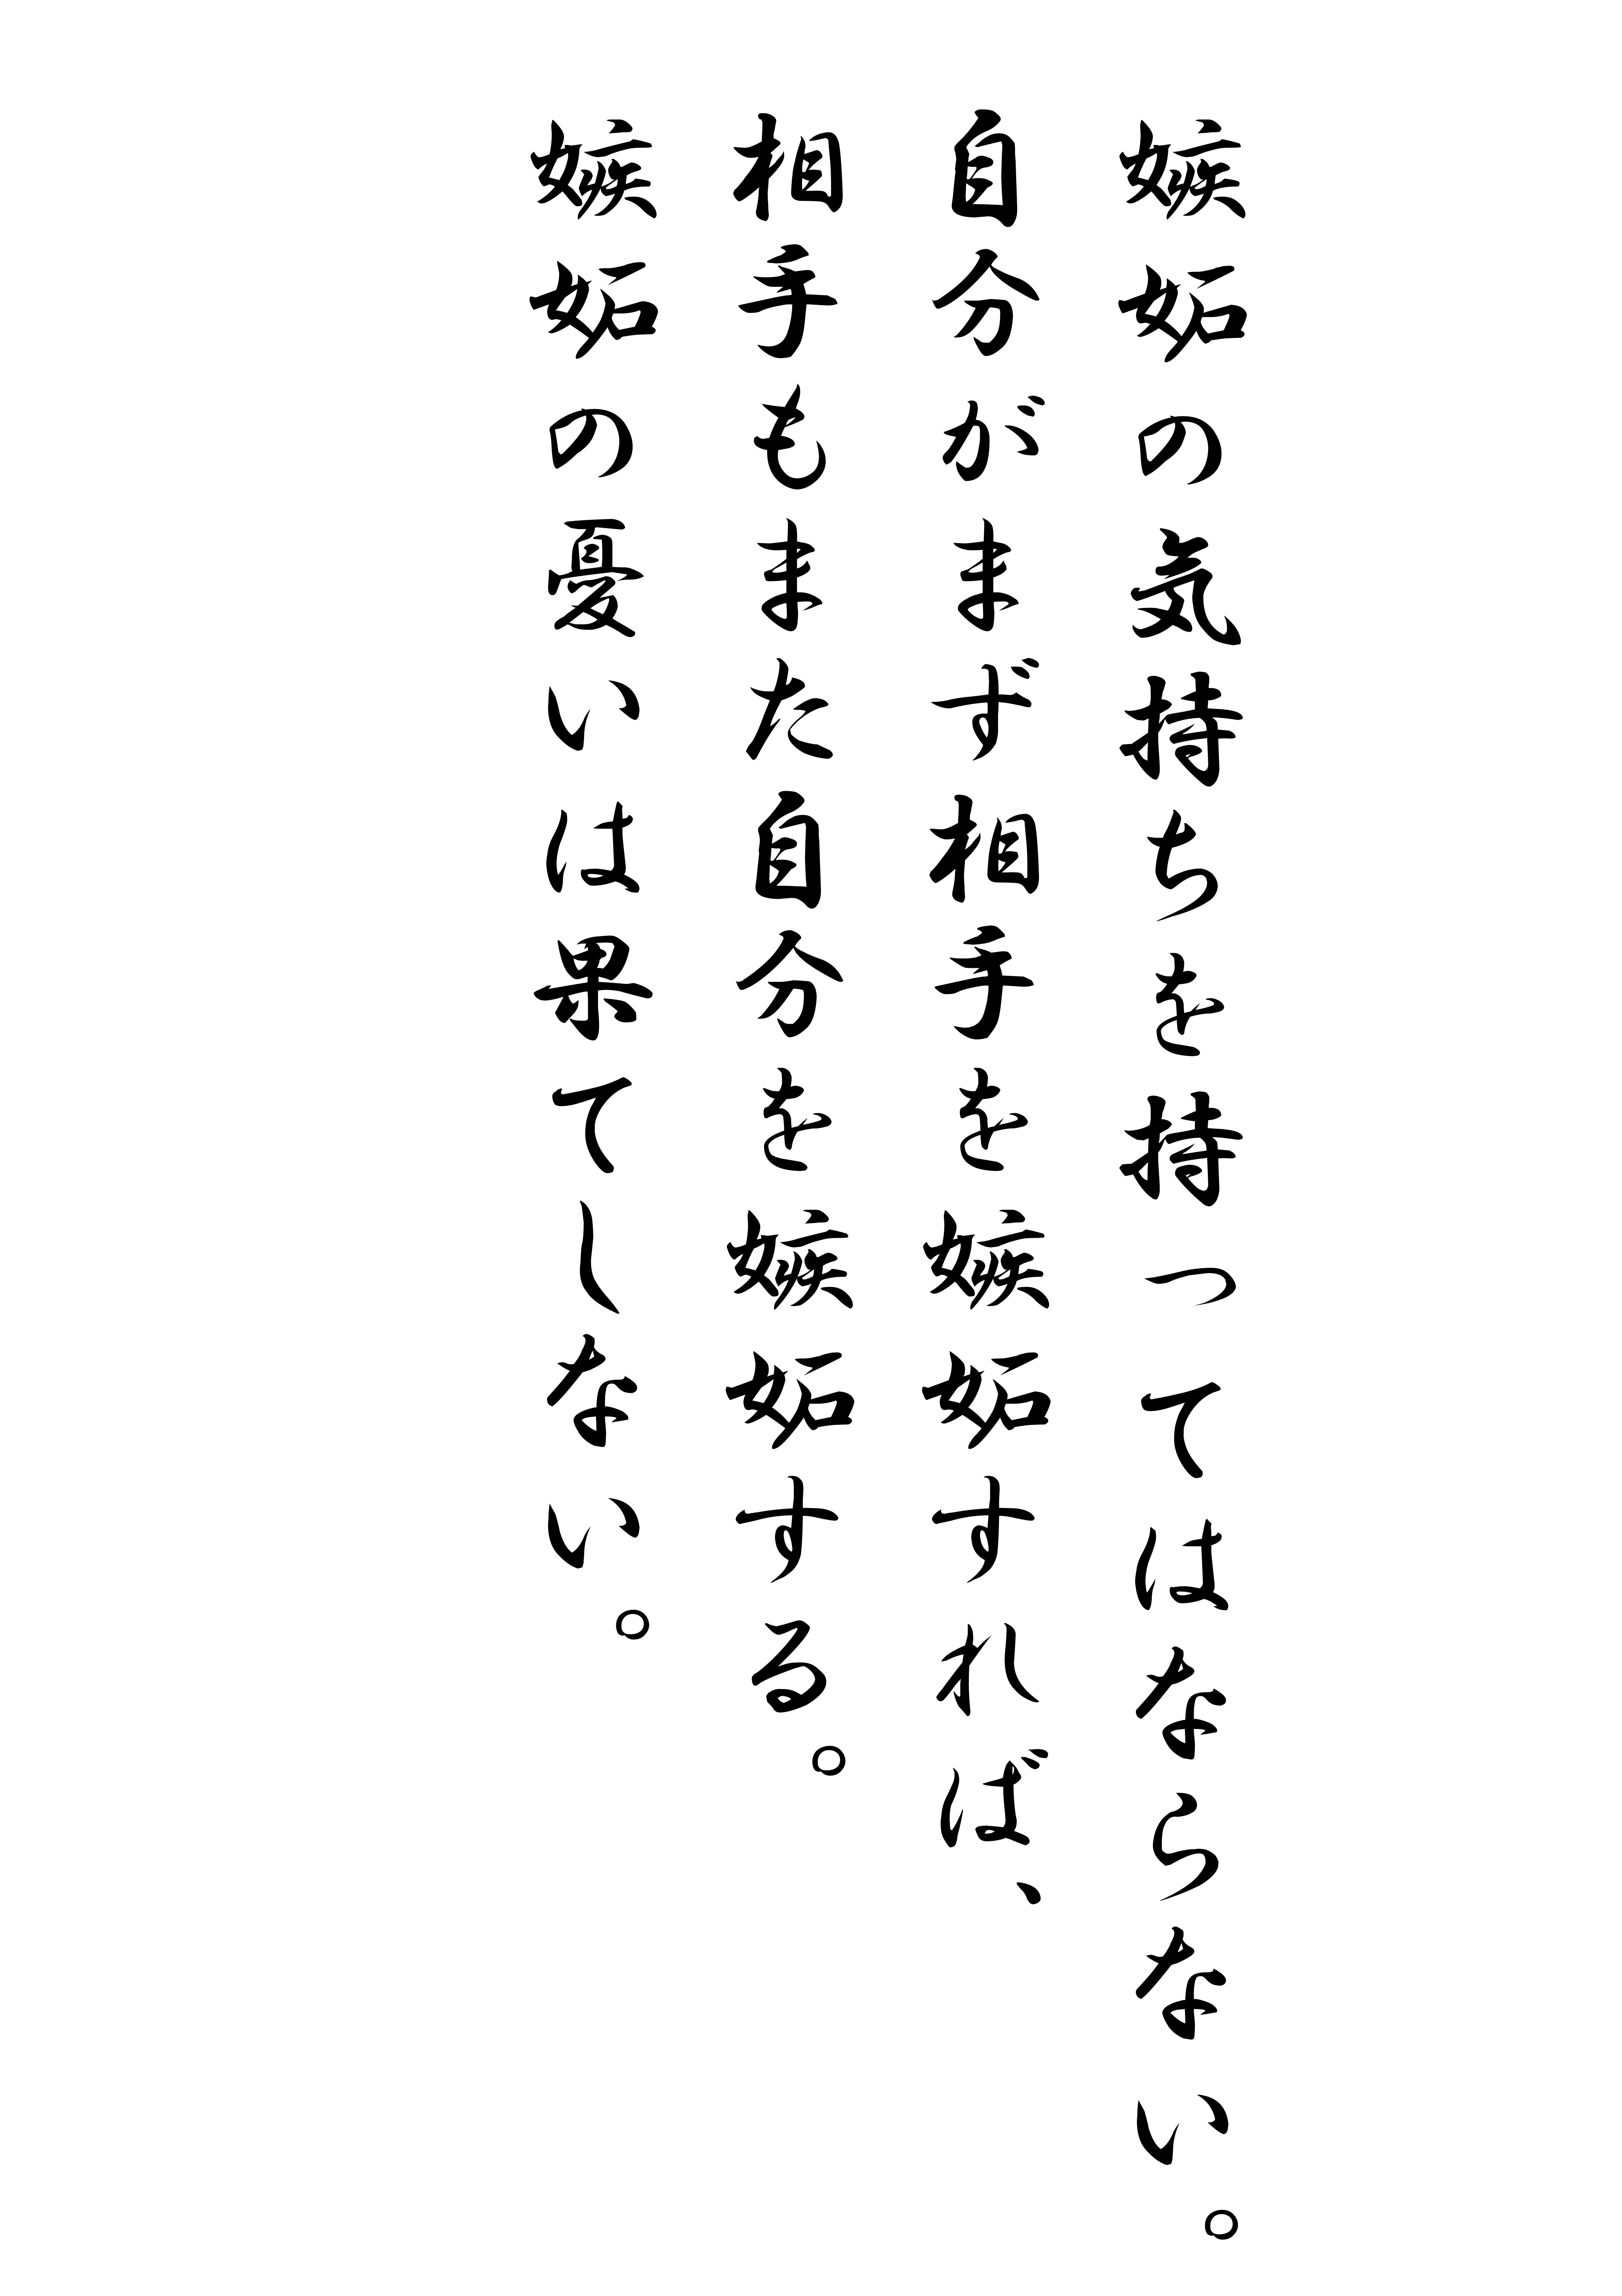 嫉妬の気持ちを持ってはならない。
自分がまず相手を嫉妬すれば、
相手もまた自分を嫉妬する。
嫉妬の憂いは果てしない。